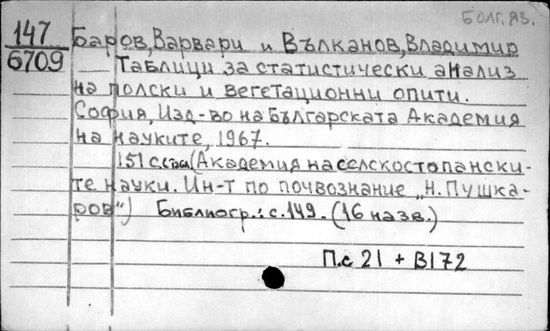 БОЛГ. ЯЗ.
147
6709
Баров, Варвари и Вълканов, Владимир
Таблици за статистически анализ
на полски и вегетационни опити.
София, Изд-во на Българската Академия
на науките, 1967.
151 с. (Академия на селскостопански-
те науки. Ин-т по почвознание „Н. Пушка-
ров“) Библиогр.: с. 149. (16 назв.)
П.с 21 + В172